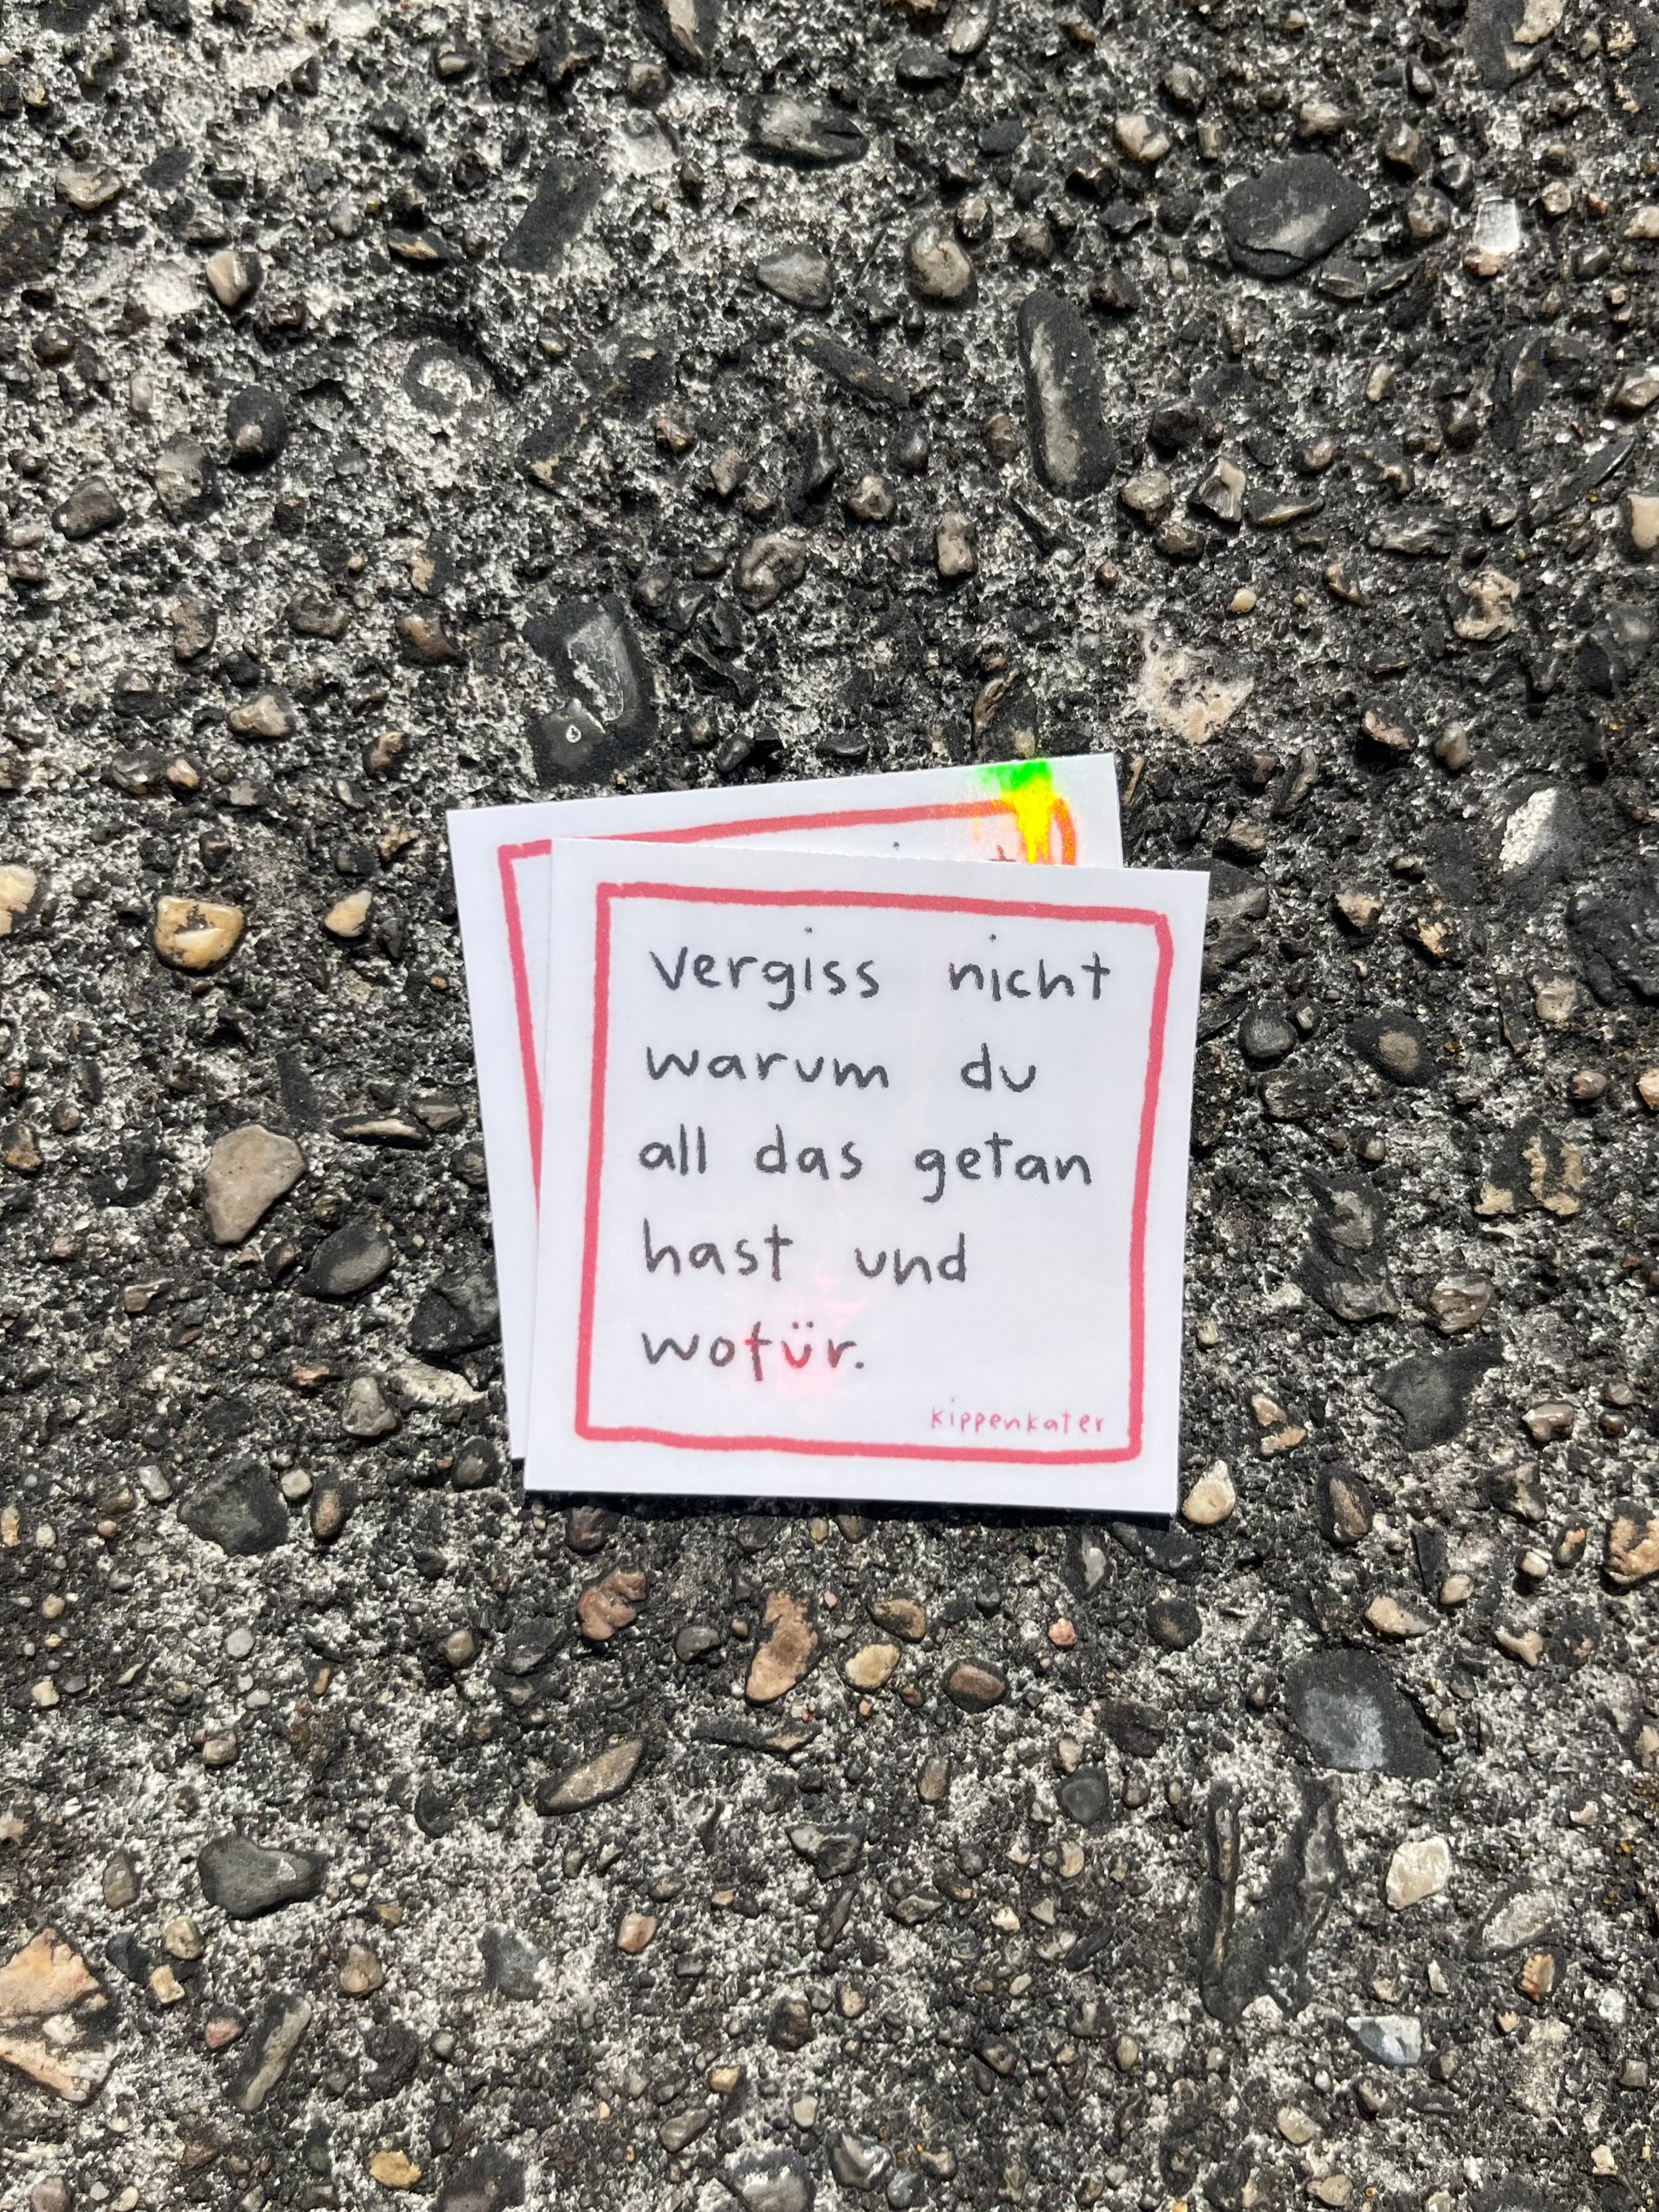 vergiss nicht
warum du
all das getan
hast und
wofür.
kippenkater